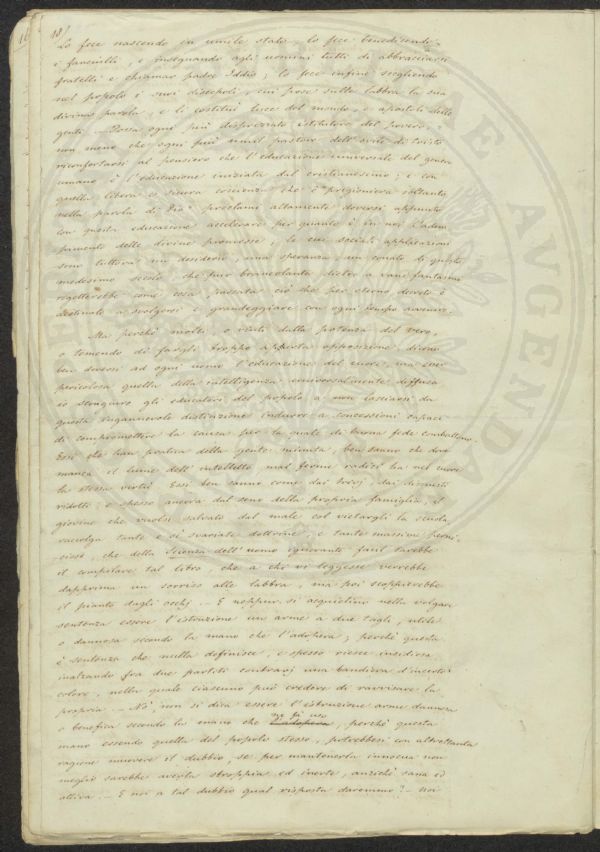 18
Lo fece nascendo in umile stato, lo fece benedicendo
i fanciulli, e insegnando agli uomini tutti di abbracciarsi
fratelli e chiamar padre Iddio; lo fece infine scegliendo
nel popolo i suoi discepoli, cui pose sulle labbra la sua
divina parola, e li costituì luce del mondo, e apostoli delle
genti. - Possa ogni più disprezzato istitutore del povero,
non meno che ogni più umil pastore dell'ovile di Cristo
riconfortarsi al pensiero che l'educazione universale del genere
umano è l'educazione iniziata dal cristianesimo; e con
quella libera e sicura coscienza che è prigioniera soltanto
nella parola di Dio proclami altamente doversi appunto
con questa educazione accelerare per quanto è in noi l'adem
pimento delle divine promesse, le cui sociali applicazioni
sono tuttora un desiderio, una speranza, un conato di questo
medesimo secolo che pur brancolante dietro a vani fantasmi
rigetterebbe come cosa passata ciò che per eterno decreto è
destinato a svolgersi e grandeggiare con ogni tempo avvenire.
Ma perchè molti, o vinti dalla potenza del vero,
o temendo di fargli troppo aperta opposizione, dicono
ben doversi ad ogni uomo l'educazione del cuore, ma esser
pericolosa quella della intelligenza universalmente diffusa
io scongiuro gli educatori del popolo a non lasciarsi da
questa ingannevole distinzione indurre a concessioni capaci
di compromettere la causa per la quale di buona fede combattono.
Essi che han pratica della gente minuta, ben sanno che dove
manca il lume dell'intelletto, mal ferme radici ha nel cuore
la stessa virtù. Essi ben sanno come dai trivj, dai
ridotti, e spesso ancora dal seno della propria famiglia, il
giovine che vuolsi salvato dal male col vietargli la scuola,
raccolga tante e sì svariate dottrine, e tante massime perni
ciose, che della Scienza dell'uomo ignorante facil sarebbe
il compilare tal libro, che a chi vi leggesse verrebbe
dapprima un sorriso alle labbra, ma poi scoppierebbe
il pianto dagli occhj. - E neppur si acquietino nella volgare
sentenza essere l'istruzione un'arme a due tagli, utile
o dannosa secondo la mano che l'adopera; perchè questa
è sentenza che nulla definisce, e spesso riesce insidiosa
inalzando fra due partiti contrarj una bandiera d'incerto
colore, nella quale ciascuno può credere di ravvisare la
propria. - No, non si dica essere l'istruzione arme dannosa
o benefica secondo la mano che l'adopera, perchè questa
ne fa uso
mano essendo quella del popolo stesso, potrebbesi con altrettanta
ragione muovere il dubbio, se per mantenerla innocua non
meglio sarebbe averla storpiata ed inerte, anzichè sana ed
attiva. - E noi a tal dubbio qual risposta daremmo? - Noi